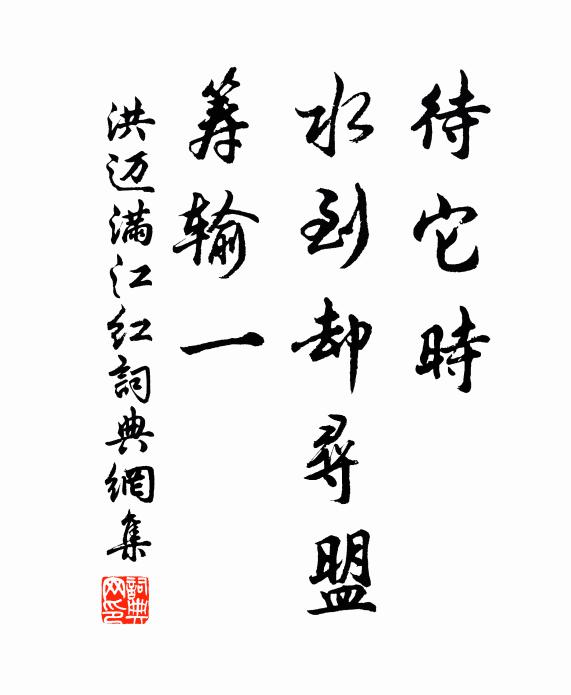 待它時
水到却尋盟
筭输一
洪迈满江红詞典網集
詞典网印